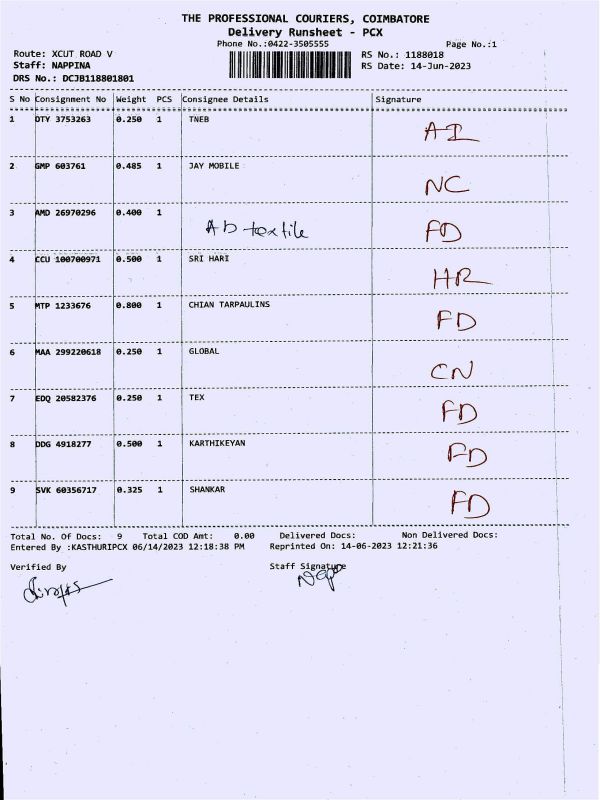 THE PROFESSIONAL COURIERS, COIMBATORE
Delivery Runsheet - PCX
Phone No.:0422-3505555 Page No.:1
Route: XCUT ROAD V RS No.: 1188018
Staff: NAPPINA RS Date: 14-Jun-2023
DRS No.: DCJB118801801
S No Consignment No Weight PCS Consignee Details Signature
1 DTY 3753263 0.250 1 TNEB AI
2 GMP 603761 0.485 1 JAY MOBILE NC
3 AMD 26970296 0.400 1 Ab textile FD
4 CCU 100700971 0.500 1 SRI HARI HR
5 MTP 1233676 0.800 1 CHIAN TARPAULINS FD
6 MAA 299220618 0.250 1 GLOBAL CN
7 EDQ 20582376 0.250 1 TEX FD
8 DDG 4918277 0.500 1 KARTHIKEYAN FD
9 SVK 60356717 0.325 1 SHANKAR FD
Total No. Of Docs: 9 Total COD Amt: 0.00 Delivered Docs: Non Delivered Docs:
Entered By :KASTHURIPCX 06/14/2023 12:18:38 PM Reprinted On: 14-06-2023 12:21:36
Verified By Staff Signature